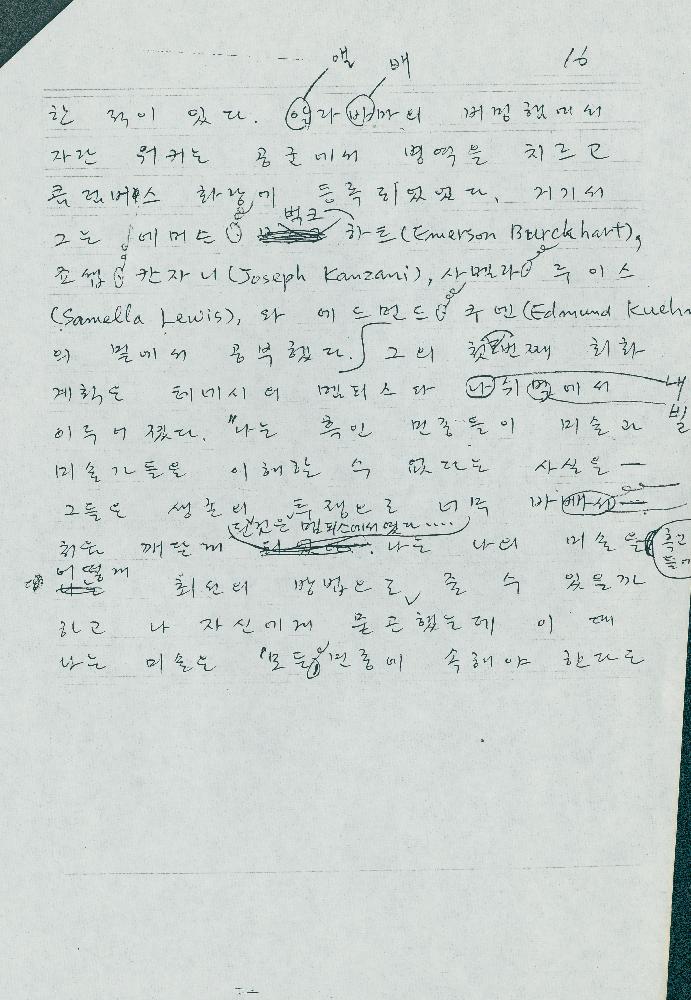 앨 배 16
한 적이 있다. 알라바마의 버밍햄에서
자란 워커는 공군에서 병역을 치르고
콜럼버스 화랑에 등록되었었다. 거기서
벅크
그는 에머슨 하트(Emerson Burckhart),
죠셉 칸자니(Joseph Kanzani), 사멜라 루이스
(Samella Lewis), 와 에드먼드 쿠엔(Edmund Kuehn
의 밑에서 공부했다. 그의 첫번째 회화
계획은 테네시의 멤피스와 나쉬빌에서 내
이루어졌다. "나는 흑인 민중들이 미술과 빌
미술가들을 이해할 수 없다는 사실을 —
그들은 생존의 투쟁으로 너무 바빠서 —
단것은 멤피스에서였다 ....
최초 깨닫게 나는 나의 미술을 흑인
어떻게 들에
최선의 방법으로 줄 수 있을까
하고 나 자신에게 묻곤했는데 이 때
나는 미술은 '모든 민중에 속해야 한다는